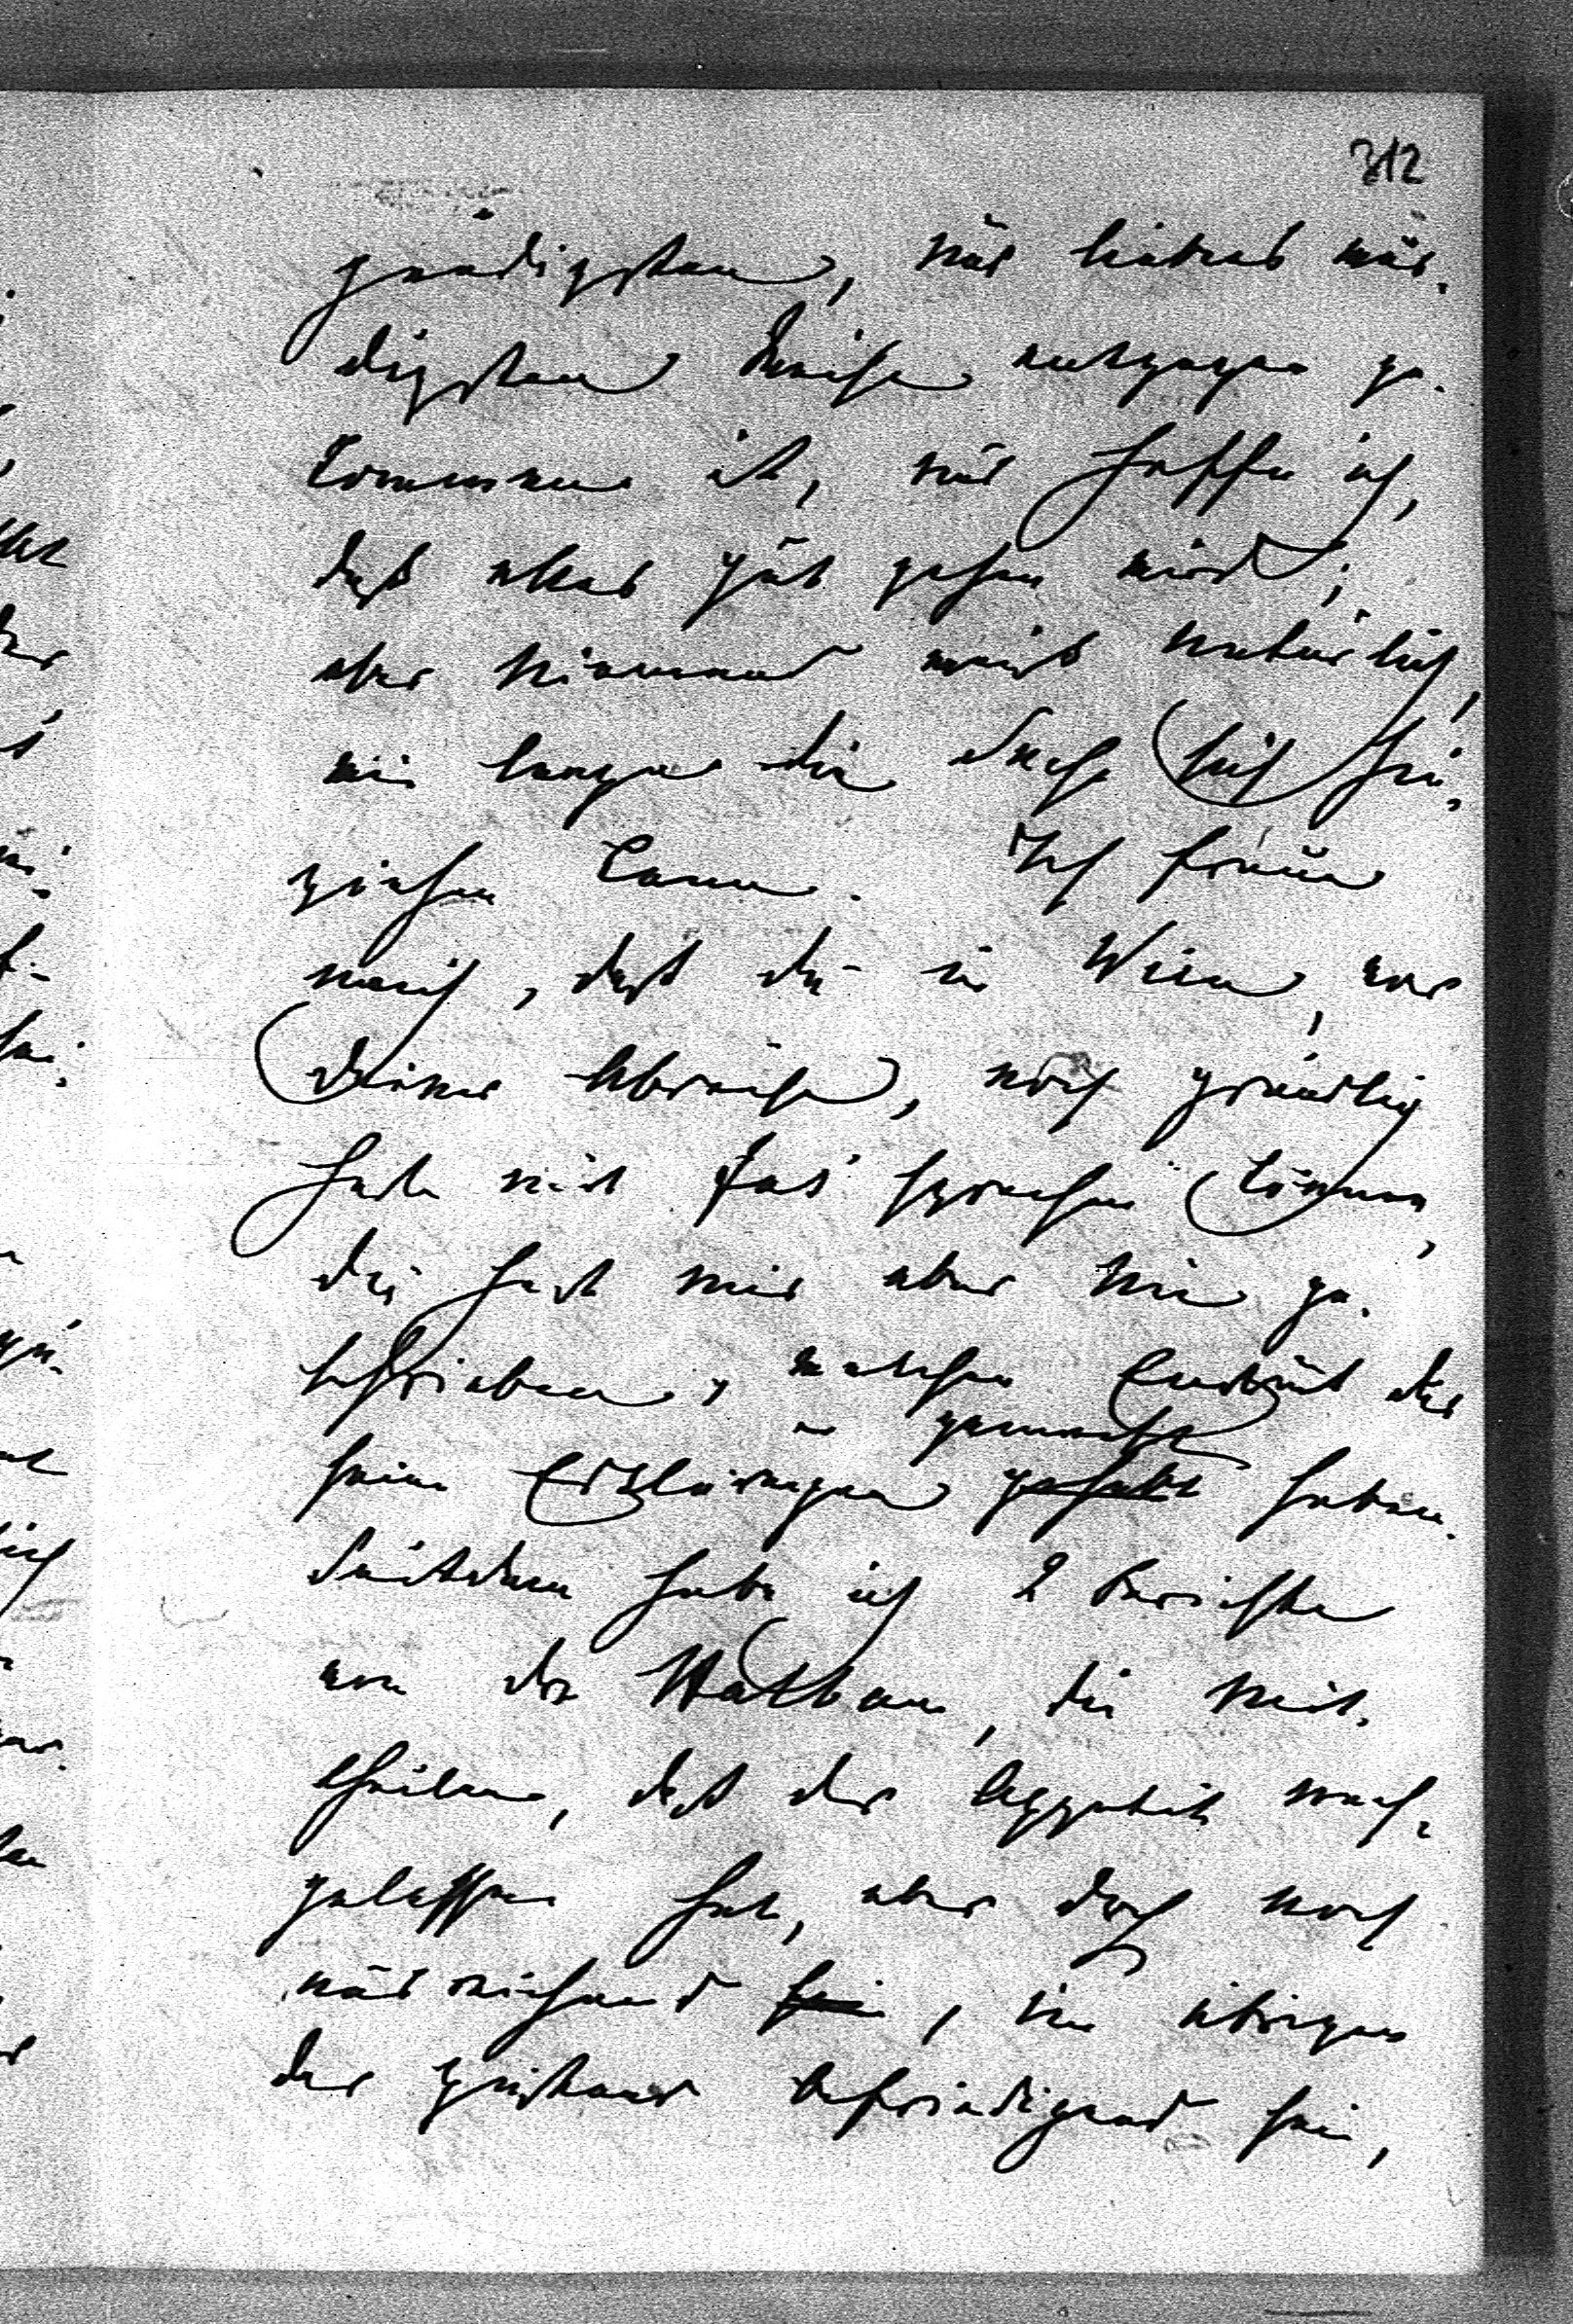 312
gnädigsten, und liebenswür-
digsten Weise entgegen ge-
kommen ist, und hoffe ich,
daß alles gut gehen wird;
aber niemand weiß natürlich,
wie lange die Sache sich hin-
ziehen kann. Ich freue
mich, daß du in Wien, vor
deiner Abreise, noch gründlich
hast mit sprechen können,
du hast mir aber nie ge-
schrieben, welchen Eindruck dir
seine Erklärungen gemacht haben.
Seitdem habe ich 2 Berichte
von der die mit-
theilen, daß der Appetit nach-
gelassen hat, aber doch noch
ausreichend, im übrigen
der Zustand befriedigend sei,